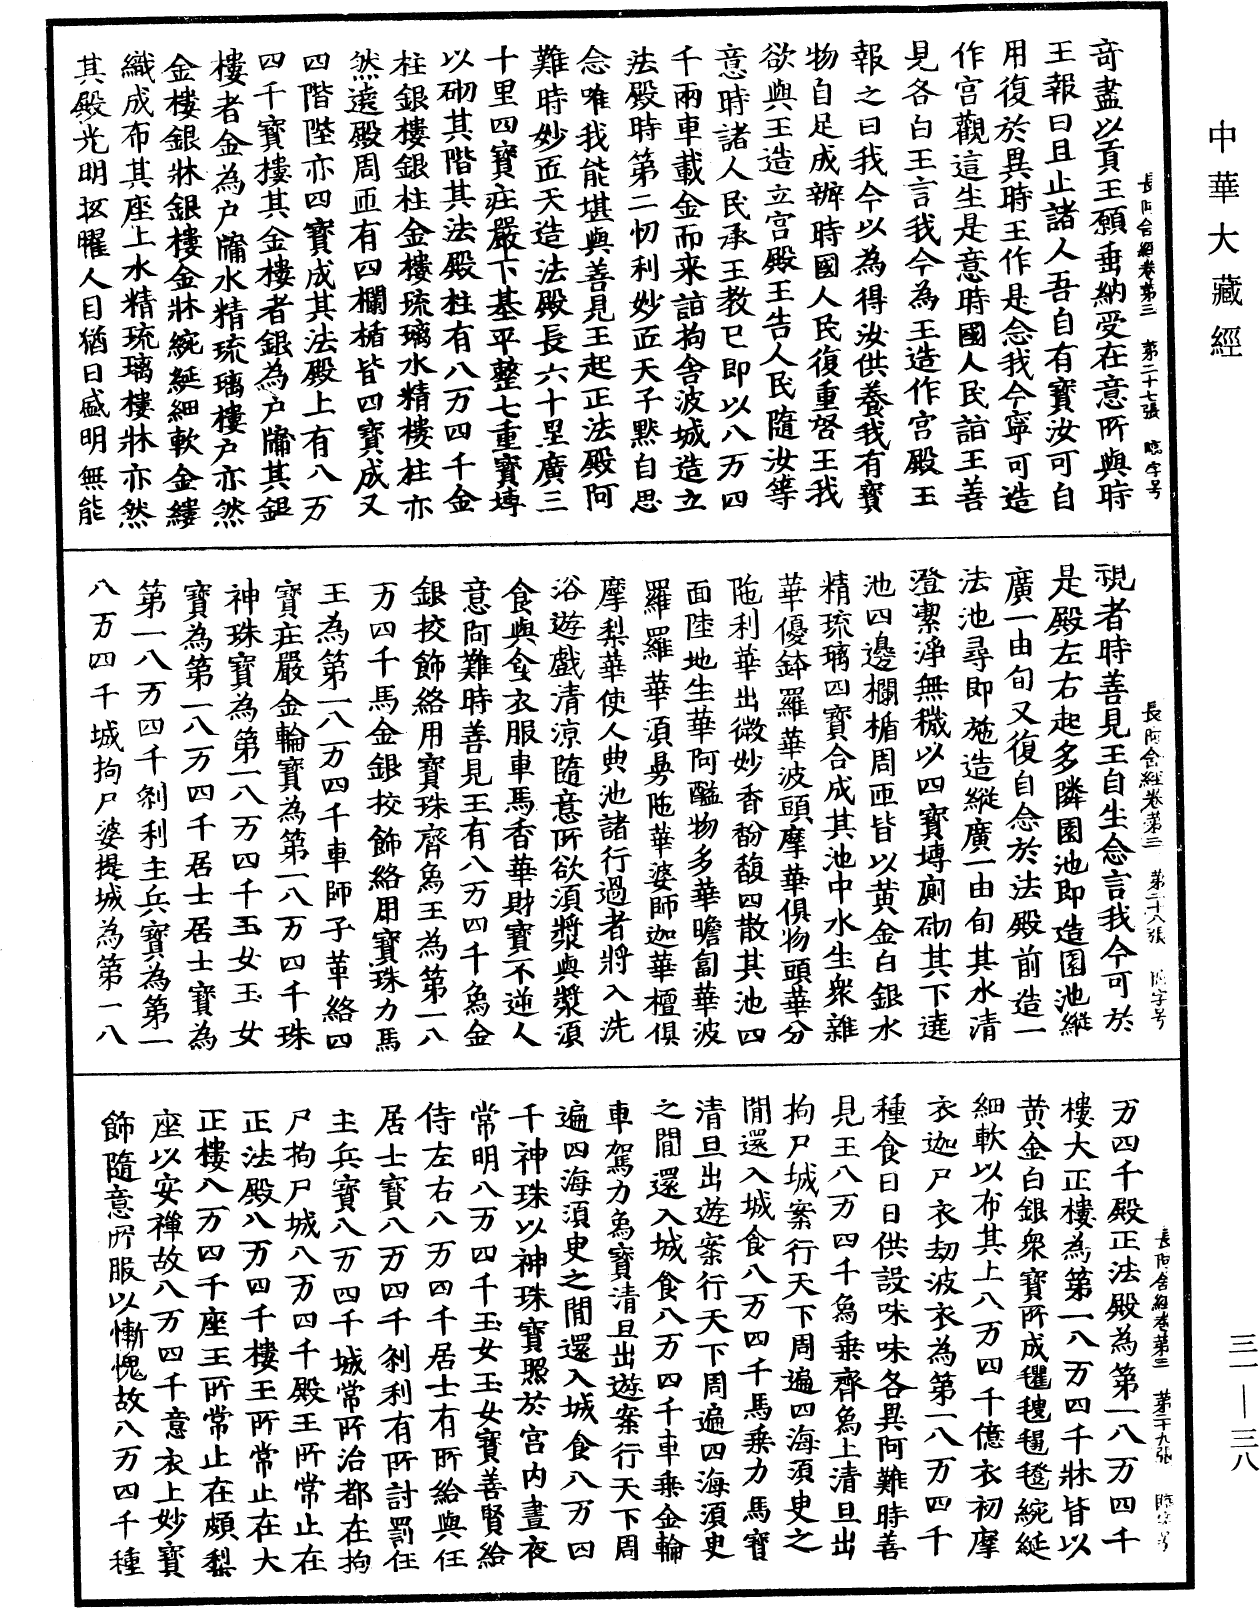 中華大藏經
三一—三八
奇盡以貢王願垂納受在意所與時
長阿含經卷第三 第二十七張 臨字号
王報曰且止諸人吾自有寶汝可自
用復於異時王作是念我今寧可造
作宮觀這生是意時國人民詣王善
見各白王言我今為王造作宮殿王
報之曰我今以為得汝供養我有寶
物自足成辦時國人民復重啓王我
欲與王造立宮殿王告人民隨汝等
意時諸人民承王教已即以八万四
千兩車載金而来詣拘舍波城造立
法殿時第二忉利妙匠天子默自思
念唯我能堪與善見王起正法殿阿
難時妙匠天造法殿長六十里廣三
十里四寶莊嚴下基平整七重寶塼
以砌其階其法殿柱有八万四千金
柱銀樓銀柱金樓琉璃水精樓柱亦
然遶殿周匝有四欄楯皆四寶成又
四階陛亦四寶成其法殿上有八万
四千寶樓其金樓者銀為户牖其銀
樓者金為户牖水精琉璃樓户亦然
金樓銀牀銀樓金牀綩綖細軟金縷
織成布其座上水精琉璃樓牀亦然
其殿光明炤曜人目猶日盛明無能
視者時善見王自生念言我今可於
長阿含經卷第三 第二十八張 臨字号
是殿左右起多隣園池即造園池縱
廣一由旬又復自念於法殿前造一
法池尋即施造縱廣一由旬其水清
澄潔淨無穢以四寶塼廁砌其下遶
池四邊欄楯周匝皆以黄金白銀水
精琉璃四寶合成其池中水生衆雜
華優鉢羅華波頭摩華俱物頭華分
陁利華出微妙香馚馥四散其池四
面陸地生華阿醯物多華瞻匐華波
羅羅華湏曼陁華婆師迦華檀俱
摩梨華使人典池諸行過者將入洗
浴遊戲清涼隨意所欲湏漿與漿湏
食與食衣服車馬香華財寶不逆人
意阿難時善見王有八万四千象金
銀挍飾絡用寶珠齊象王為第一八
万四千馬金銀挍飾絡用寶珠力馬
王為第一八万四千車師子革絡四
寶莊嚴金輪寶為第一八万四千珠
神珠寶為第一八万四千玉女玉女
寶為第一八万四千居士居士寶為
第一八万四千剎利主兵寶為第一
八万四千城拘尸婆提城為第一八
万四千殿正法殿為第一八万四千
長阿含經卷第三 第二十九張 臨字号
樓大正樓為第一八万四千牀皆以
黄金白銀衆寶所成氍毹毾㲪綩綖
細軟以布其上八万四千億衣初摩
衣迦尸衣劫波衣為第一八万四千
種食日日供設味味各異阿難時善
見王八万四千象乘齊象上清旦出
拘尸城案行天下周遍四海湏臾之
閒還入城食八万四千馬乘力馬寶
清旦出遊案行天下周遍四海湏臾
之閒還入城食八万四千車乘金輪
車駕力象寶清旦出遊案行天下周
遍四海湏臾之閒還入城食八万四
千神珠以神珠寶照於宮内晝夜
常明八万四千玉女玉女寶善賢給
侍左右八万四千居士有所給與任
居士寶八万四千剎利有所討罰任
主兵寶八万四千城常所治都在拘
尸拘尸城八万四千殿王所常止在
正法殿八万四千樓王所常止在大
正樓八万四千座王所常止在頗梨
座以安禪故八万四千意衣上妙寶
飾隨意所服以慚愧故八万四千種